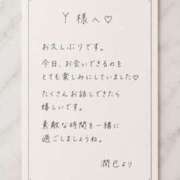 Y様へ♡
お久しぶりです。
今日、お会いできるのを
とても楽しみにしていました♡
たくさんお話しできたら
嬉しいです。
素敵な時間を一緒に
過ごしましょうね。
潤巳より